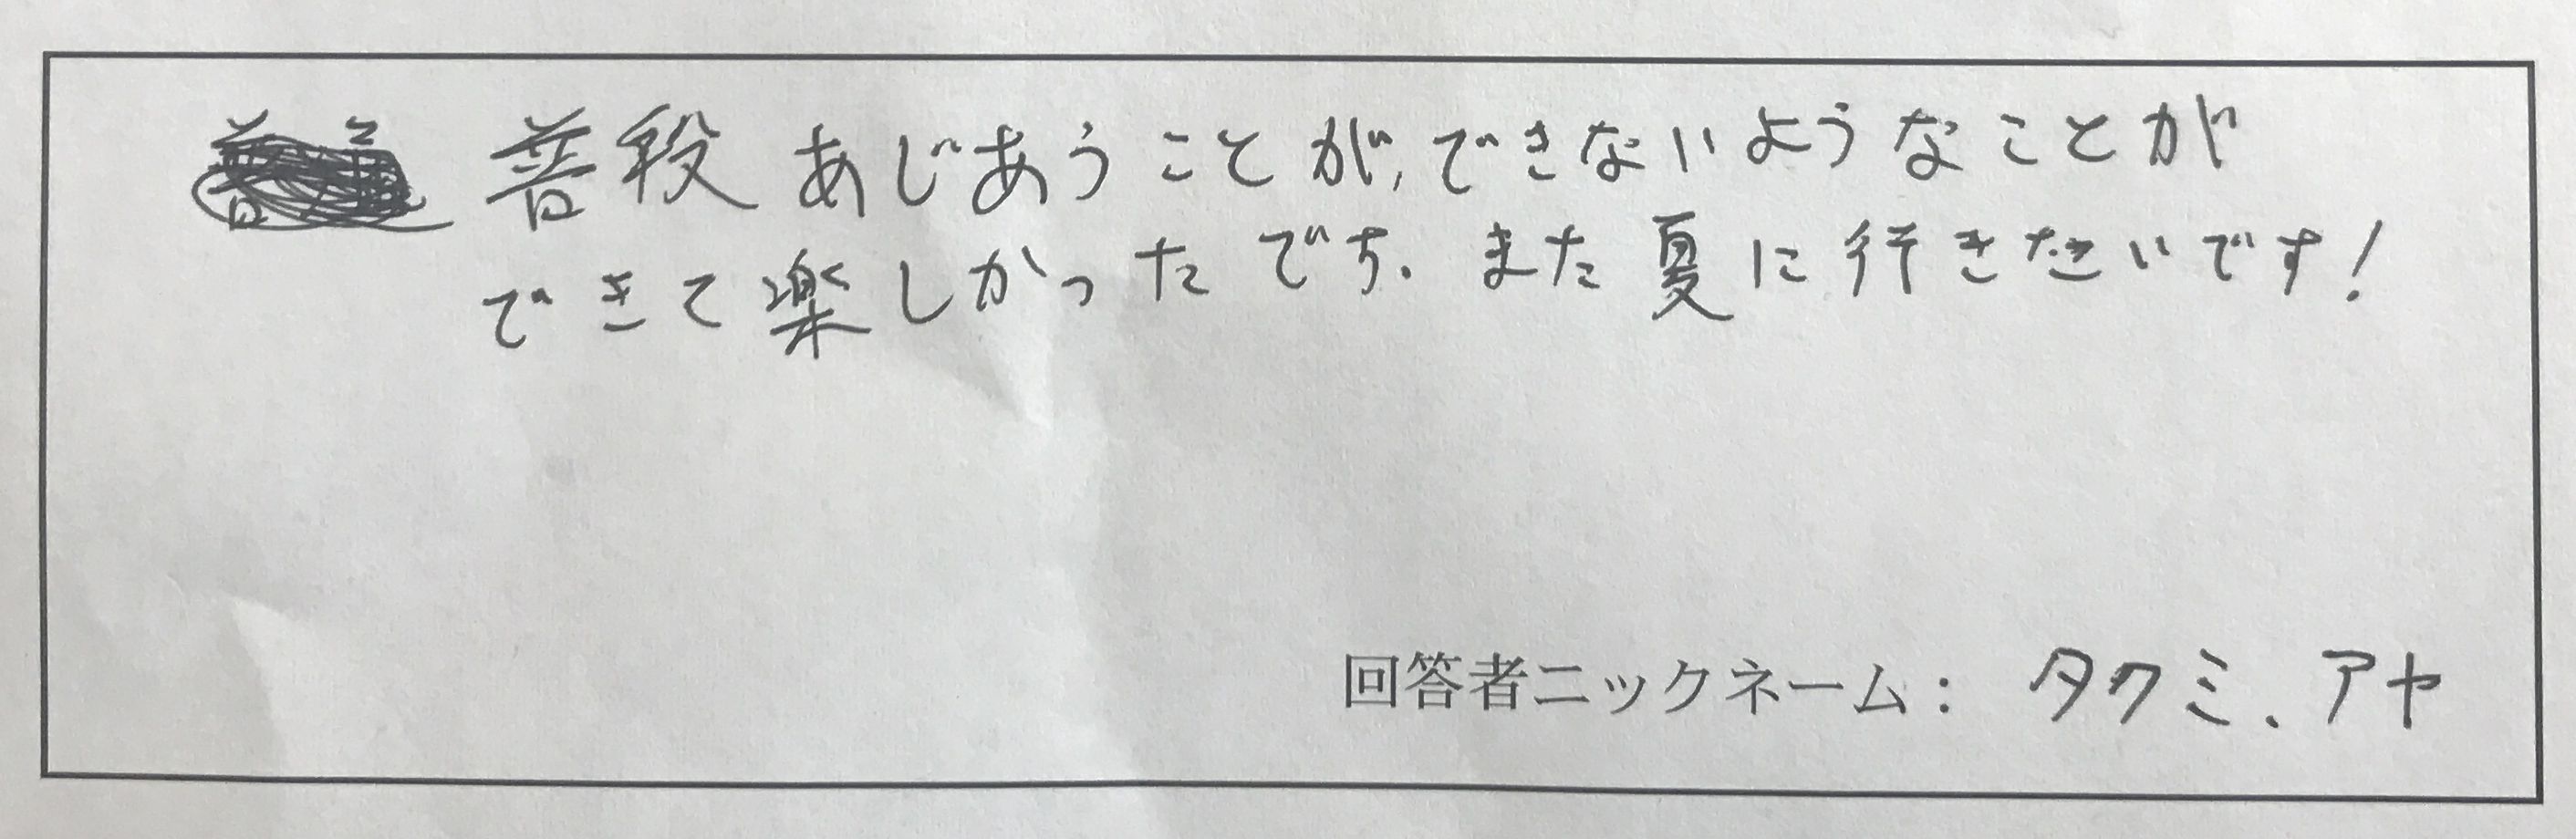 普段あじあうことが、できないようなことが
できて楽しかったです。また夏に行きたいです!
回答者ニックネーム: タクミ、アヤ